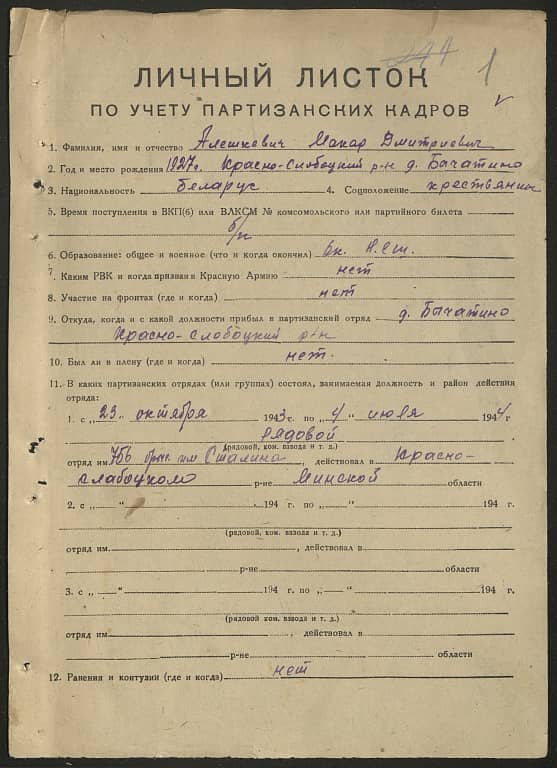 1
ЛИЧНЫЙ ЛИСТОК
ПО УЧЕТУ ПАРТИЗАНСКИХ КАДРОВ
1. Фамилия, имя и отчество Алешкевич Макар Дмитриевич
2. Год и место рождения 1927г. Красно-Слободский р-н д. Бачатино
3. Национальность беларус 4. Соцположение крествянин
5. Время поступления в ВКП(б) или ВЛКСМ № комсомольского или партийного билета
б/п
6. Образование: общее и военное (что и когда окончил) 6кл. Н.С.Ш.
7. Каким РВК и когда призван в Красную Армию нет
8. Участие на фронтах (где и когда) нет
9. Откуда, когда и с какой должности прибыл в партизанский отряд д. Бычатино
Красно-слобоцкий р-н
10. Был ли в плену (где и когда) нет.
11. В каких партизанских отрядах (или группах) состоял, занимаемая должность и район действия
отряда:
1. с „23" октября 1943 г. по „4" июля 1944 г.
рядовой
(рядовой, ком. взвода и т. д.)
отряд им. 756 бриг. им Сталина, действовал в Красно-
слабоцком р-не Минской области
2. с „ —" 194 г. по „ —" 194 г.
(рядовой, ком. взвода и т. д.)
отряд им. , действовал в
р-не области
3. с „ —" 194 г. по „ —" 194 г.
(рядовой ком. взвода и т. д.)
отряд им. , действовал в
р-не области
12. Ранения и контузии (где и когда) нет